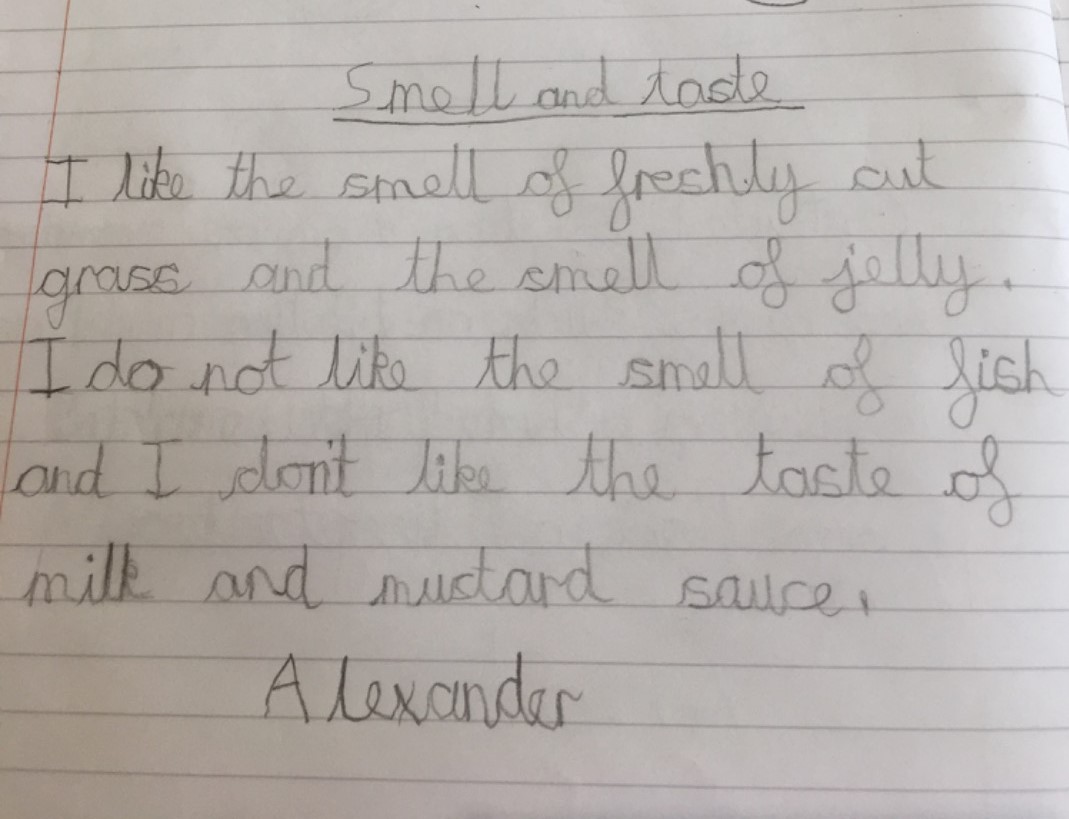 Smell and taste
I like the smell of freshly cut
grass and the smell of jelly.
I do not like the smell of fish
and I don't like the taste of
milk and mustard sauce.
Alexander